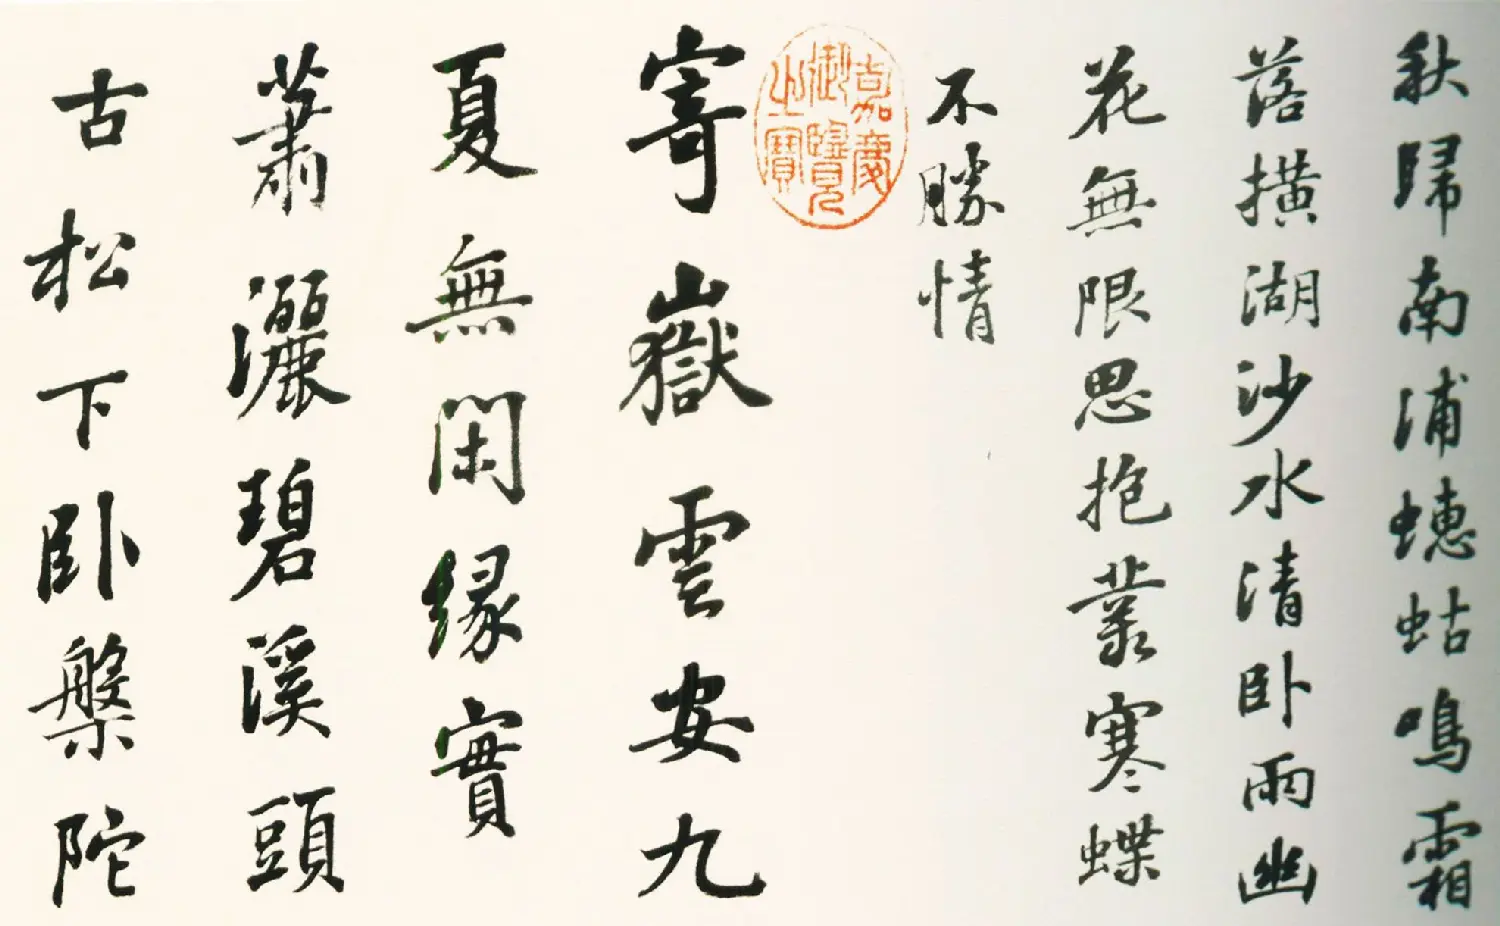 秋歸南浦蟪蛄鳴霜
落橫湖沙水清卧雨幽
花無限思抱叢寒蝶
不勝情
嘉慶
御覽
之寶
寄嶽雲安九
夏無閑緣實
蕭灑碧溪頭
古松下卧盤陀